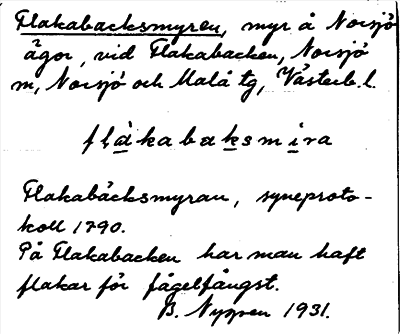 Flakabacksmyren, myr å Norsjö
ägor, vid Flakabacken, Norsjö
m, Norsjö och Malå tg, Västerb. l.
flàkabaksmira
Flakabäcksmyran, syneproto-
koll 1790.
På Flakabacken har man haft
flakar för fågelfångst.
B. Nyppen 1931.